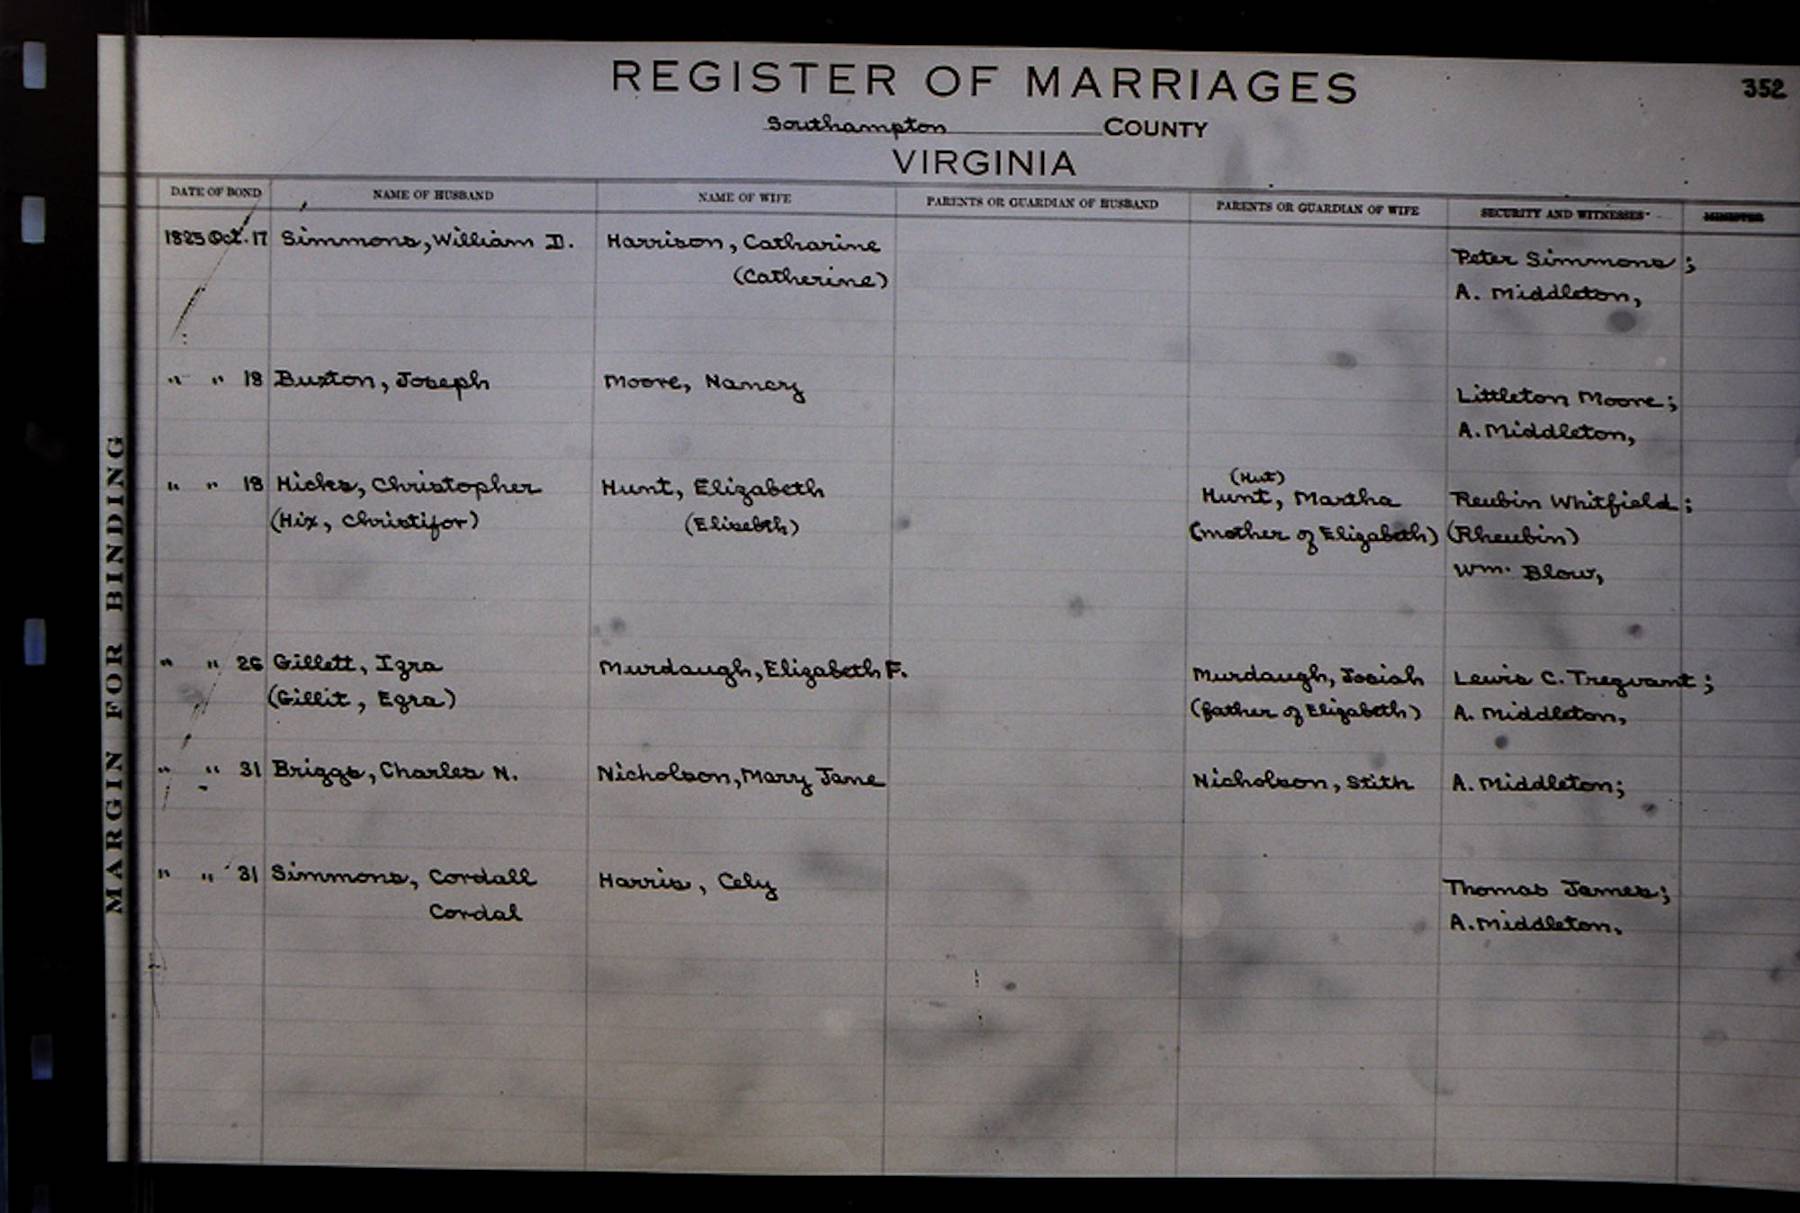 REGISTER OF MARRIAGES
352
Southampton COUNTY
VIRGINIA
DATE OF BOND NAME OF HUSBAND NAME OF WIFE PARENTS OR GUARDIAN OF HUSBAND PARENTS OR GUARDIAN OF WIFE SECURITY AND WITNESSES MINISTER
1825 Oct. 17 Simmons, William D. Harrison, Catharine Peter Simmons;
(Catherine) A. Middleton,
" " 18 Buxton, Joseph Moore, Nancy Littleton Moore;
A. Middleton,
(Hut)
" " 18 Hicks, Christopher Hunt, Elizabeth Hunt, Martha Reubin Whitfield;
(Hix, Christifor) (Elisebth) (mother of Elizabeth) (Rheubin)
Wm. Blow,
" " 26 Gillett, Izra Murdaugh, Elizabeth F. Murdaugh, Josiah Lewis C. Trezvant;
(Gillit, Ezra) (father of Elizabeth) A. Middleton,
" " 31 Briggs, Charles N. Nicholson, Mary Jane Nicholson, Stith A. Middleton;
" " 31 Simmons, Cordall Harris, Cely Thomas James;
Cordal A. Middleton,
MARGIN FOR BINDING